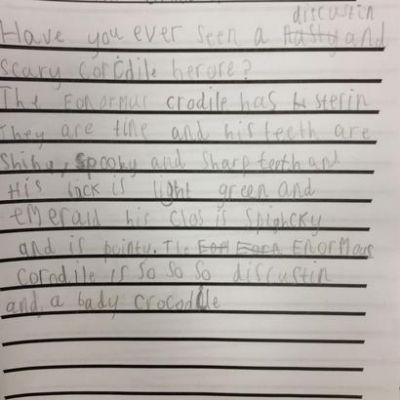 discustin
Have you ever seen a nasty and
scary corcdile herore?
The Fonormus crodile has sterin
They are tine and his teeth are
Shihy, Spooky and Sharp teeth and
His is light green and
emerald his clos is Spighcky
and is pointy. The Enormous
corodile is so so so discustin
and a bady crocodile